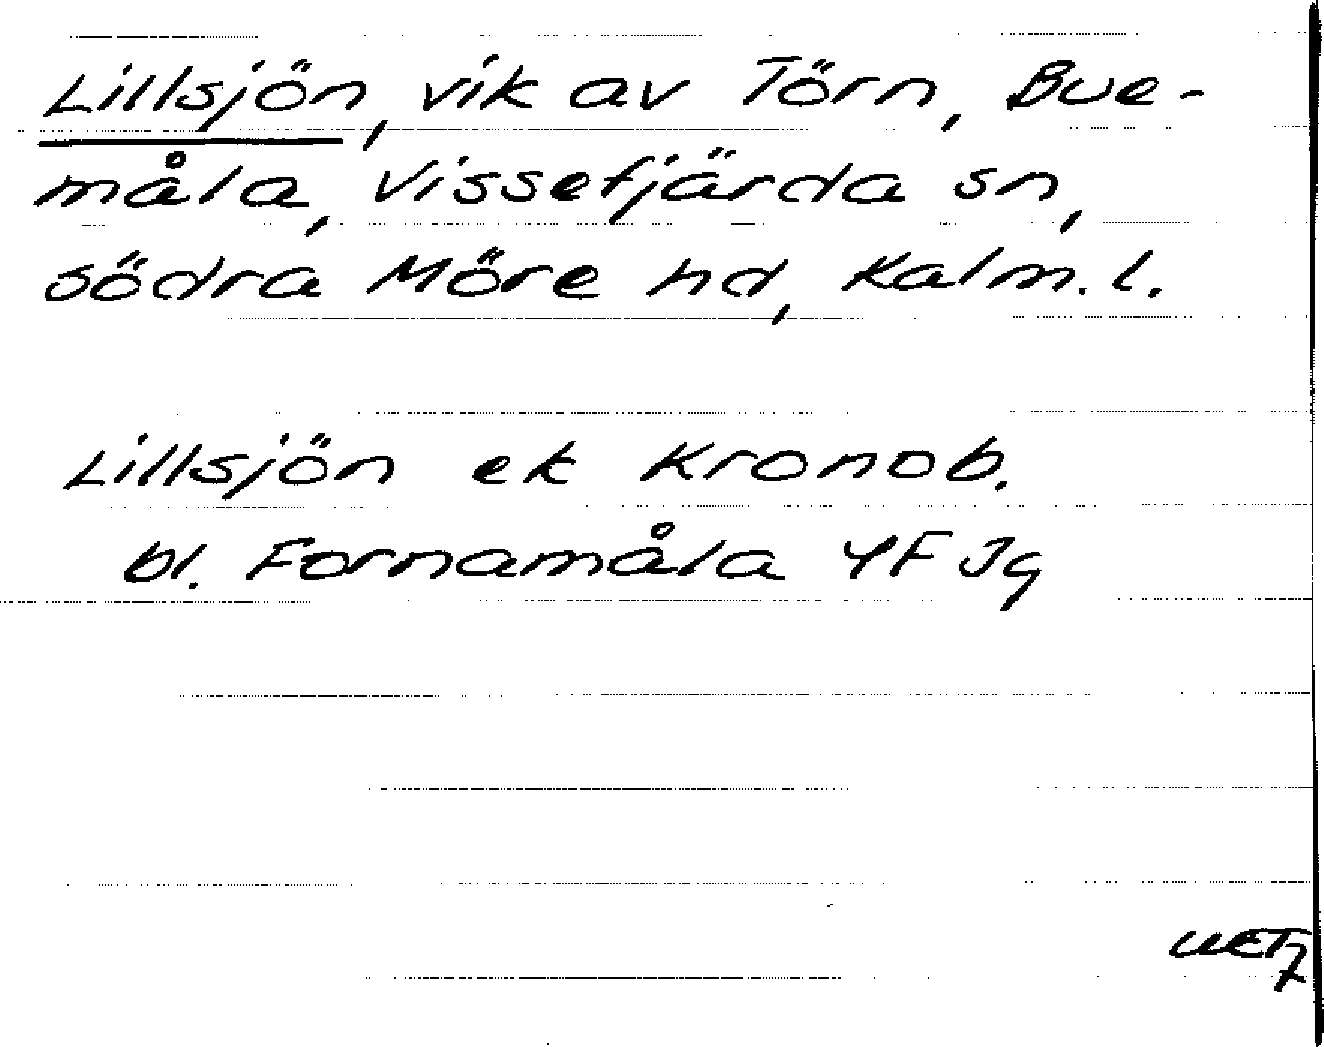 Lillsjön, vik av Törn, Bue-
måla, Vissefjärda sn,
södra Möre hd, Kalm. l.
Lillsjön ek Kronob.
bl. Fornamåla YF Jg